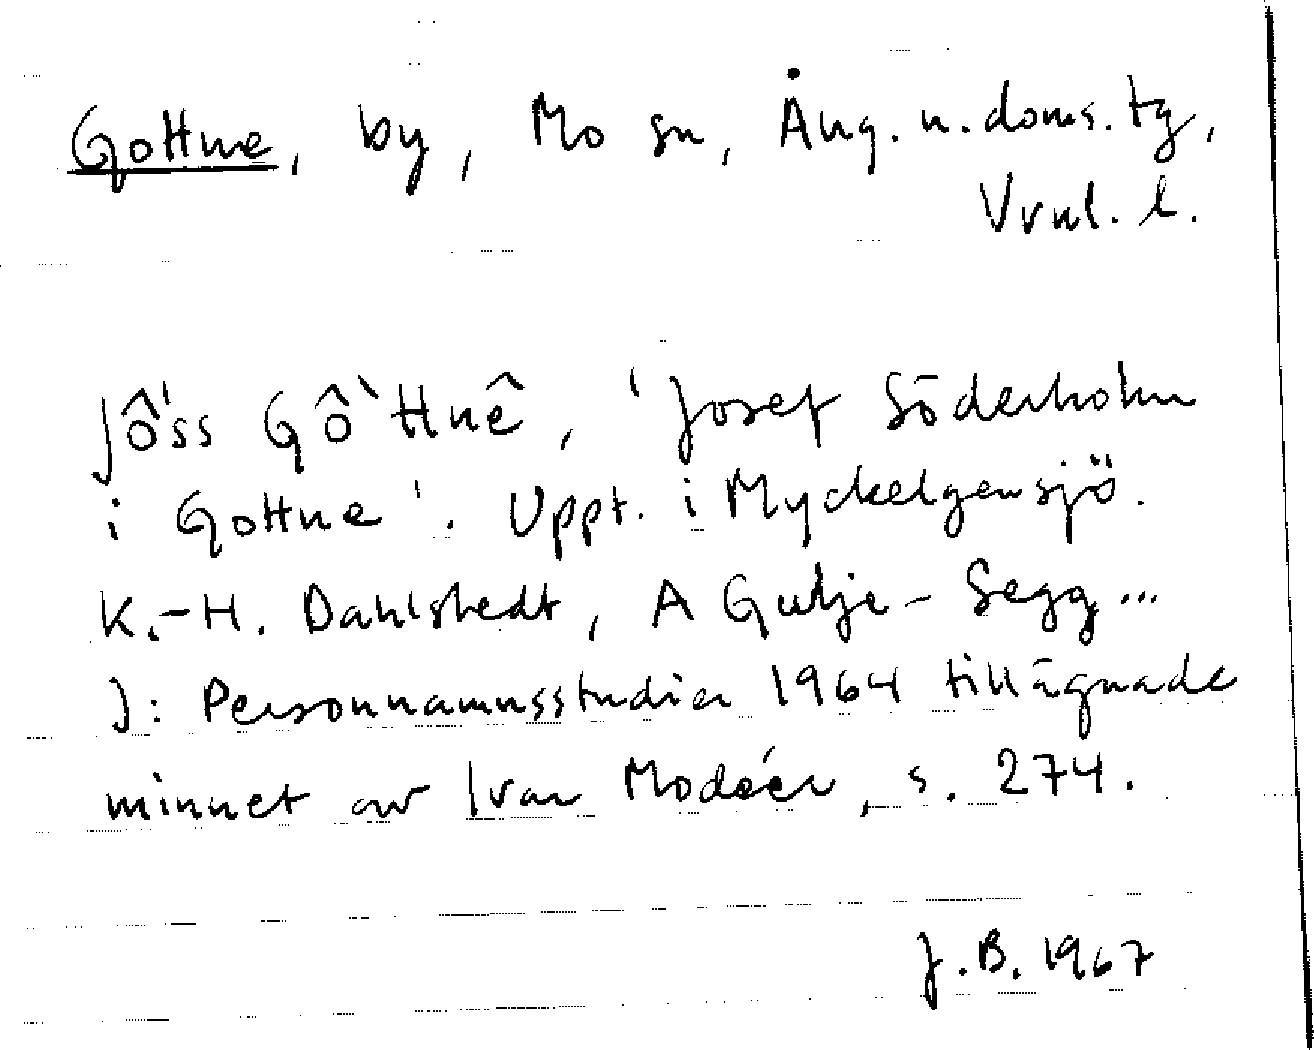 Gottne, by, Mo sn, Ång. n. doms. tg,
Vrnl. l.
Jô'ss Gô`ttnê, 'Josef Söderholm
i Gottne'. Uppt. i Myckelgensjö.
K.-H. Dahlstedt, A Gulje-Segg...
I: Personnamnsstudier 1964 tillägnade
minnet av Ivar Modéer, s. 274.
J.B. 1967